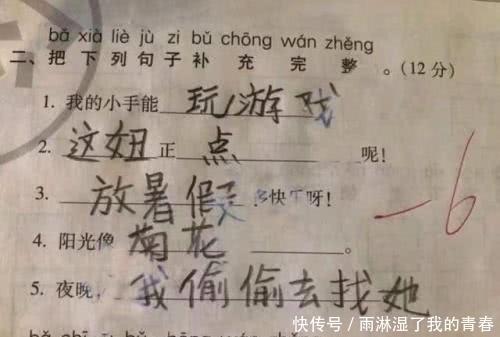 bǎ xià liè jù zi bǔ chōng wán zhěng
二、把下列句子补充完整。(12分)
1. 我的小手能 玩游戏
2. 这妞正 点 呢!
3. 放暑假 多快乐呀!
4. 阳光像 菊花 。
5. 夜晚, 我偷偷去找她
-6
快传号/雨淋湿了我的青春